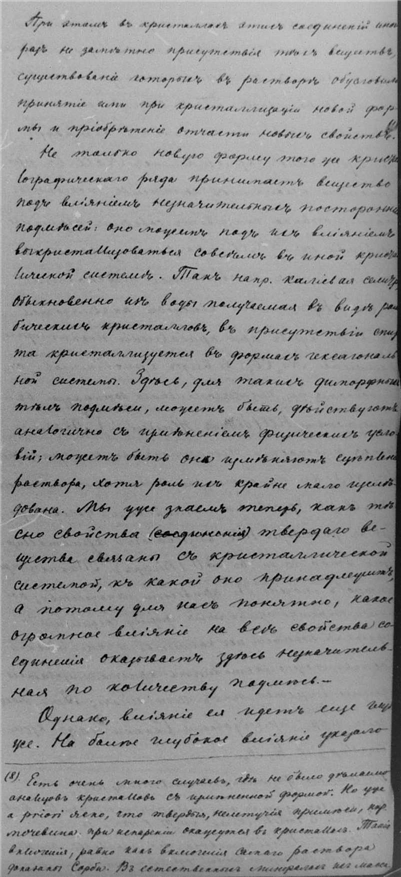 При этомъ въ кристаллахъ этихъ соединенiй иног
раз не замѣтно присутствiя тѣхъ веществъ,
существованiе которыхъ въ растворѣ обусловило
принятiе или при кристаллизацiи новой фор-
мы и прiобрѣтенiе отчасти новыхъ свойствъ.
Не только новую форму того же кристал
лографическаго ряда принимаетъ вещество
подъ влiянiемъ незначительныхъ постороннихъ
подмѣсей: оно можетъ подъ ихъ влiянiемъ
выкристаллизоваться совсѣмъ въ иной кристал
лической системѣ. Такъ напр. калiевая селитра
обыкновенно изъ воды получаемая въ видѣ ром
бическихъ кристалловъ, въ присутствiи спир
та кристаллизуется въ формахъ гексагональ
ной системы. Здѣсь, для такихъ диморфныхъ
тѣлъ подмѣси, можетъ быть, дѣйствуютъ
аналогично съ измѣненiемъ физическихъ усло
вiй; можетъ быть они измѣняютъ сцѣпленiе
раствора, хотя роль ихъ крайне мало изслѣ
дована. Мы уже знаемъ теперь, какъ тѣ
сно свойства (соединенiя) твердаго ве-
щества связаны съ кристаллической
системой, къ какой оно принадлежитъ,
а потому для насъ понятно, какое
огромное влiянiе на всѣ свойства со-
единенiя оказываетъ здѣсь незначитель-
ная по количеству подмѣсь.–
Однако, влiянiе ея идетъ еще глуб
же. На болѣе глубокое влiянiе указало
(8) Есть очень много случаевъ, гдѣ не было сдѣлано
анализовъ кристалловъ съ измѣненной формой. Но уже
a priori ясно, что твердыя, нелетучiя примѣси, нар.
мочевина при испаренiи окажутся въ кристаллѣ. Такiя
включенiя, равно какъ включенiя самаго раствора
доказаны Сорби. Въ естественныхъ минералахъ ихъ